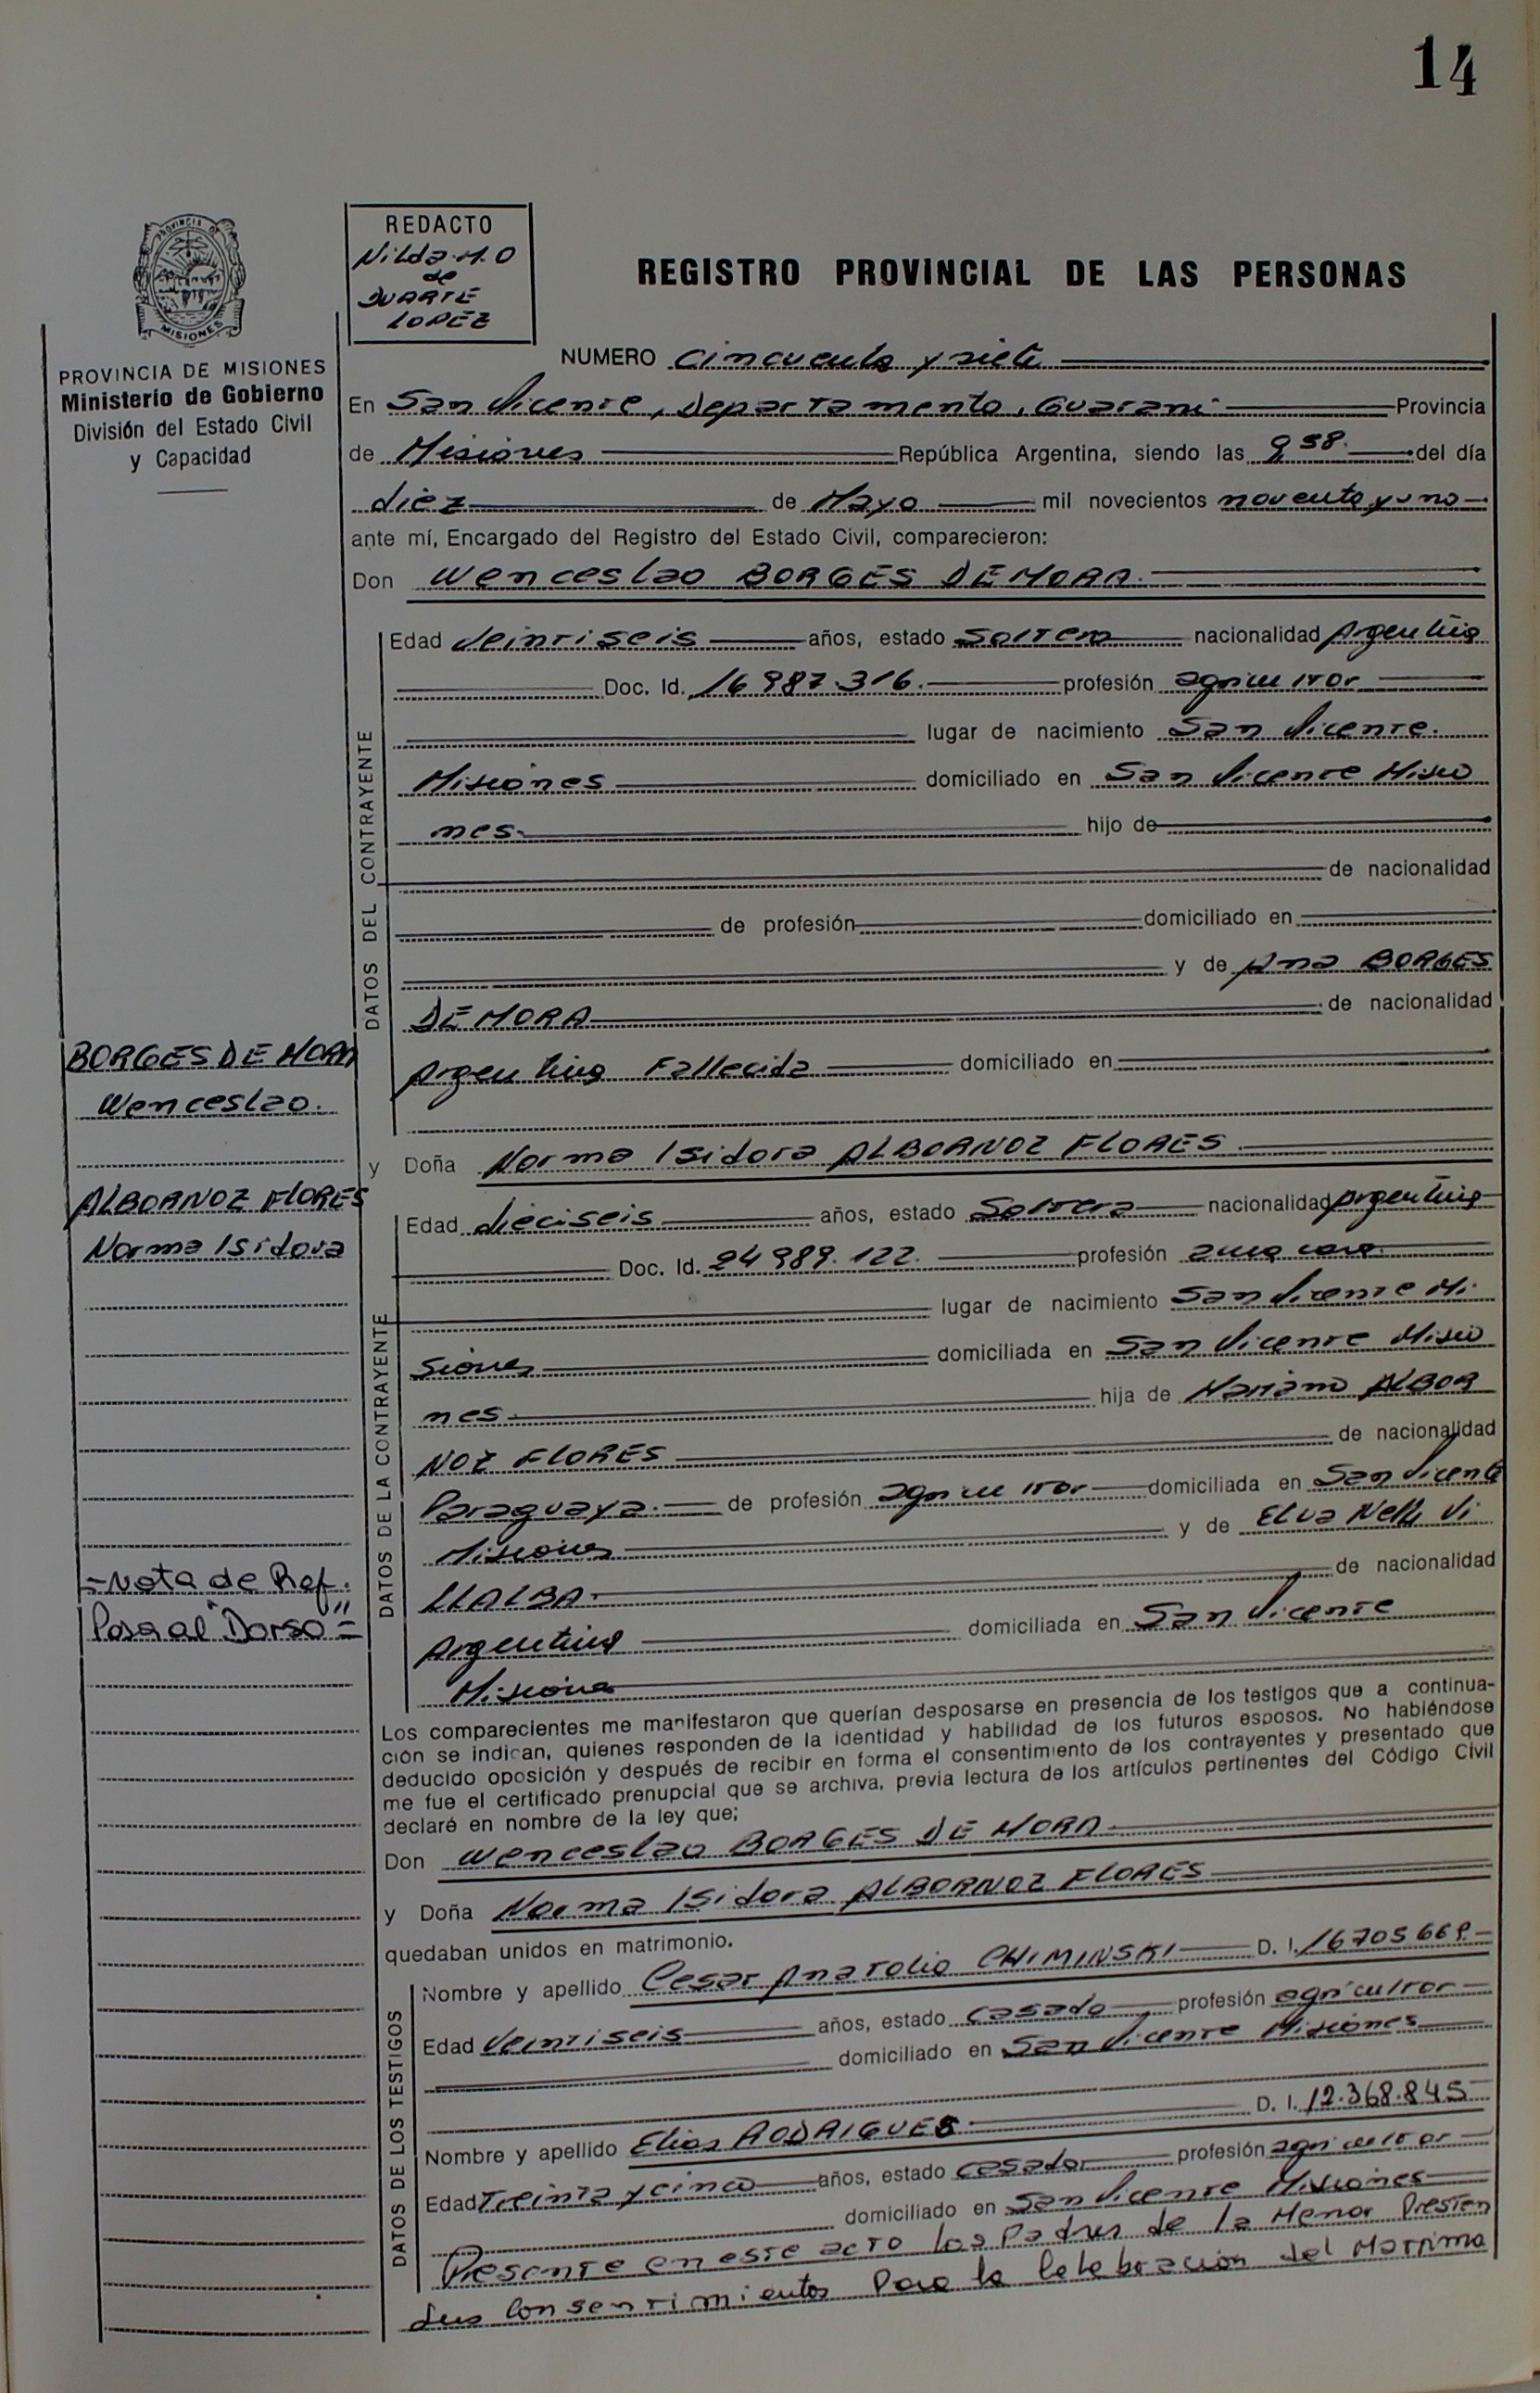 14
PROVINCIA DE
MISIONES
PROVINCIA DE MISIONES
Ministerio de Gobierno
División del Estado Civil
y Capacidad
REDACTO
Nilda M. O
de
DUARTE
LOPEZ
REGISTRO PROVINCIAL DE LAS PERSONAS
NUMERO cincuenta y siete
En San Vicente, Departamento, Guarani Provincia
de Misiones República Argentina, siendo las 9 58. del día
diez de Mayo mil novecientos noventa y uno
ante mí, Encargado del Registro del Estado Civil, comparecieron:
Don Wenceslao BORGES DE MORA
DATOS DEL CONTRAYENTE
Edad Veintiseis años, estado soltero nacionalidad Argentina
Doc. Id. 16 987.316. profesión agricultor
lugar de nacimiento San Vicente.
Misiones domiciliado en San Vicente Misio
nes hijo de
de nacionalidad
de profesión domiciliado en
y de Ana BORGES
DE MORA de nacionalidad
Argentina Fallecida domiciliado en
BORGES DE MORA
Wenceslao.
y Doña Norma Isidora ALBORNOZ FLORES
ALBORNOZ FLORES
Norma Isidora
DATOS DE LA CONTRAYENTE
Edad dieciseis años, estado Soltera nacionalidad Argentina
Doc. Id. 24 989.122. profesión ama casa
lugar de nacimiento San Vicente Mi
siones domiciliada en San Vicente Misio
nes hija de Mariano ALBOR
NOZ FLORES de nacionalidad
Paraguaya. de profesión agricultor domiciliada en San Vicente
Misiones y de Elva Nelly Vi
LLALBA de nacionalidad
Argentina domiciliada en San Vicente
Misiones
=Nota de Ref.
Pasa al "Dorso"=
Los comparecientes me manifestaron que querían desposarse en presencia de los testigos que a continua-
ción se indican, quienes responden de la identidad y habilidad de los futuros esposos. No habiéndose
deducido oposición y después de recibir en forma el consentimiento de los contrayentes y presentado que
me fue el certificado prenupcial que se archiva, previa lectura de los artículos pertinentes del Código Civil
declaré en nombre de la ley que;
Don Wenceslao BORGES DE MORA
y Doña Norma Isidora ALBORNOZ FLORES
quedaban unidos en matrimonio.
DATOS DE LOS TESTIGOS
Nombre y apellido Cesar Anatolio CHIMINSKI D. I. 16705669
Edad Veintiseis años, estado casado profesión agricultor
domiciliado en San Vicente Misiones
Nombre y apellido Elias RODRIGUES D. I. 12.368.845
Edad Treinta y cinco años, estado casado profesión agricultor
domiciliado en San Vicente Misiones
Presente en este acto los Padres de la Menor Presten
sus consentimientos Para la Celebración del Matrimo